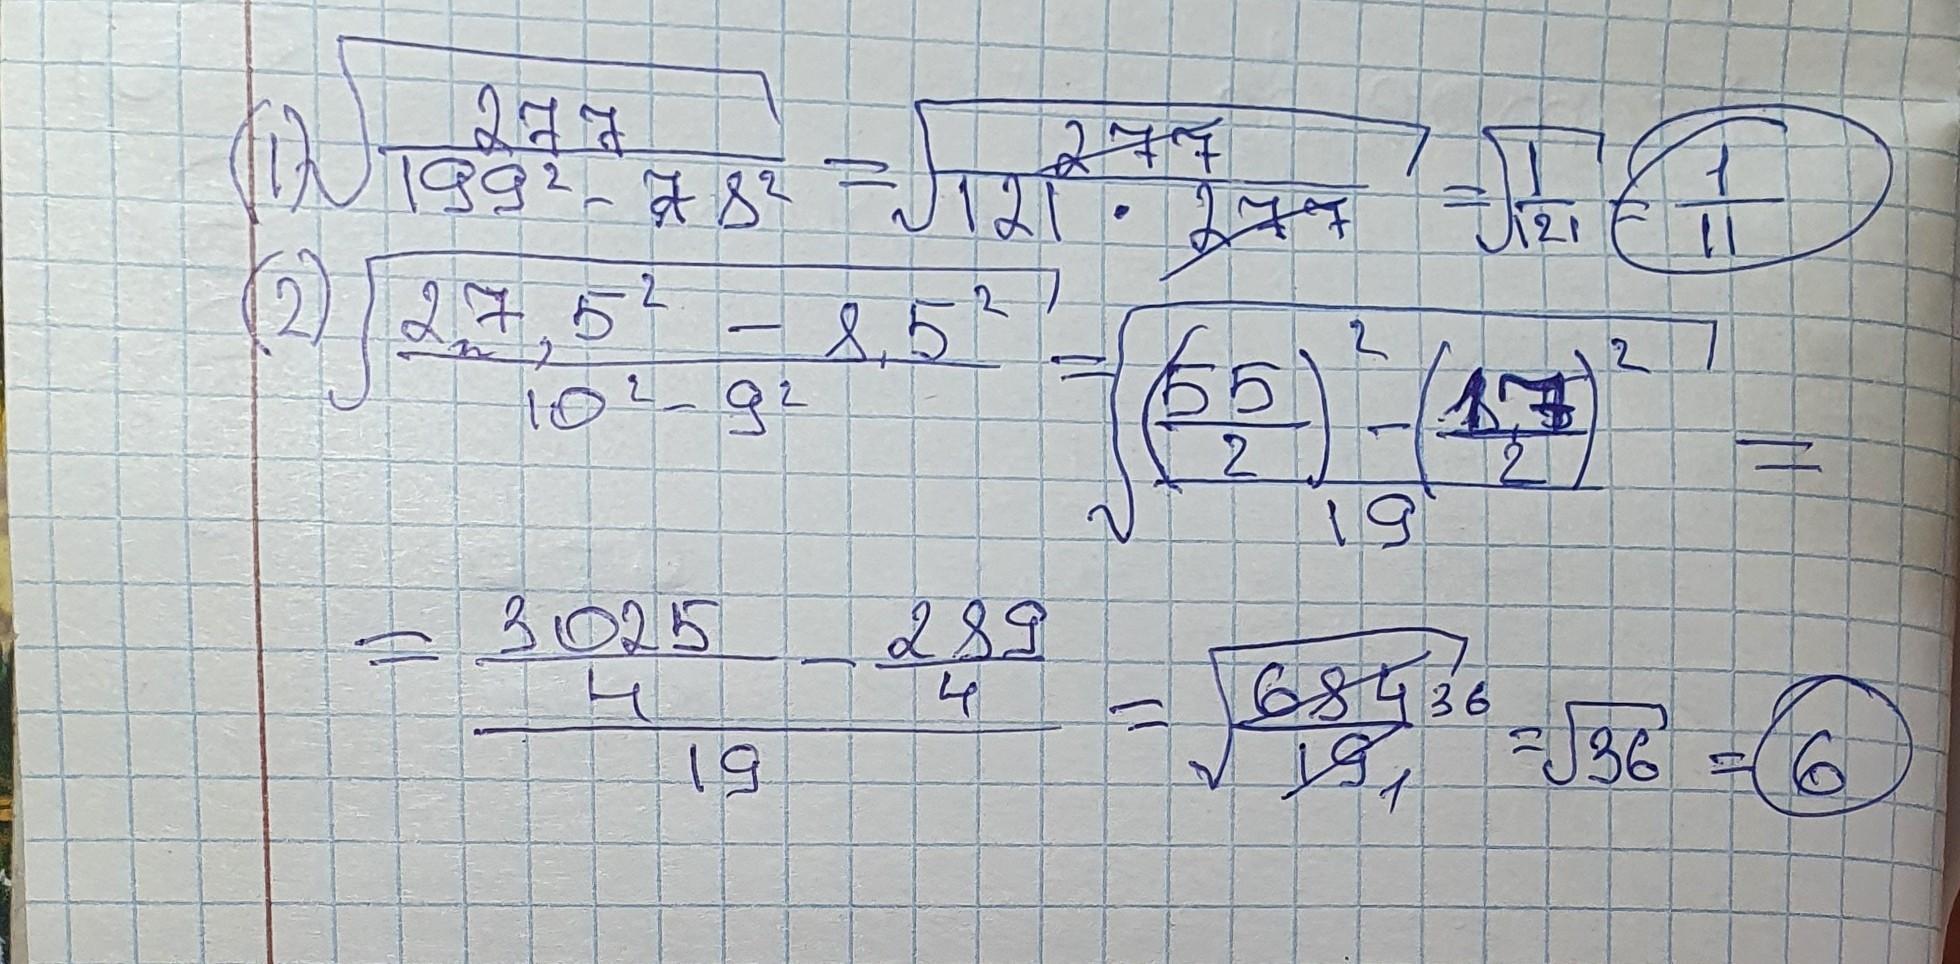 (1) √(277/(199² - 78²)) = √(277/(121 · 277)) = √(1/121) = 1/11
(2) √((27,5² - 8,5²)/(10² - 9²)) = √(((55/2)² - (17/2)²)/19) =
= (3025/4 - 289/4)/19 = √(684/19) 36 1 = √36 = 6